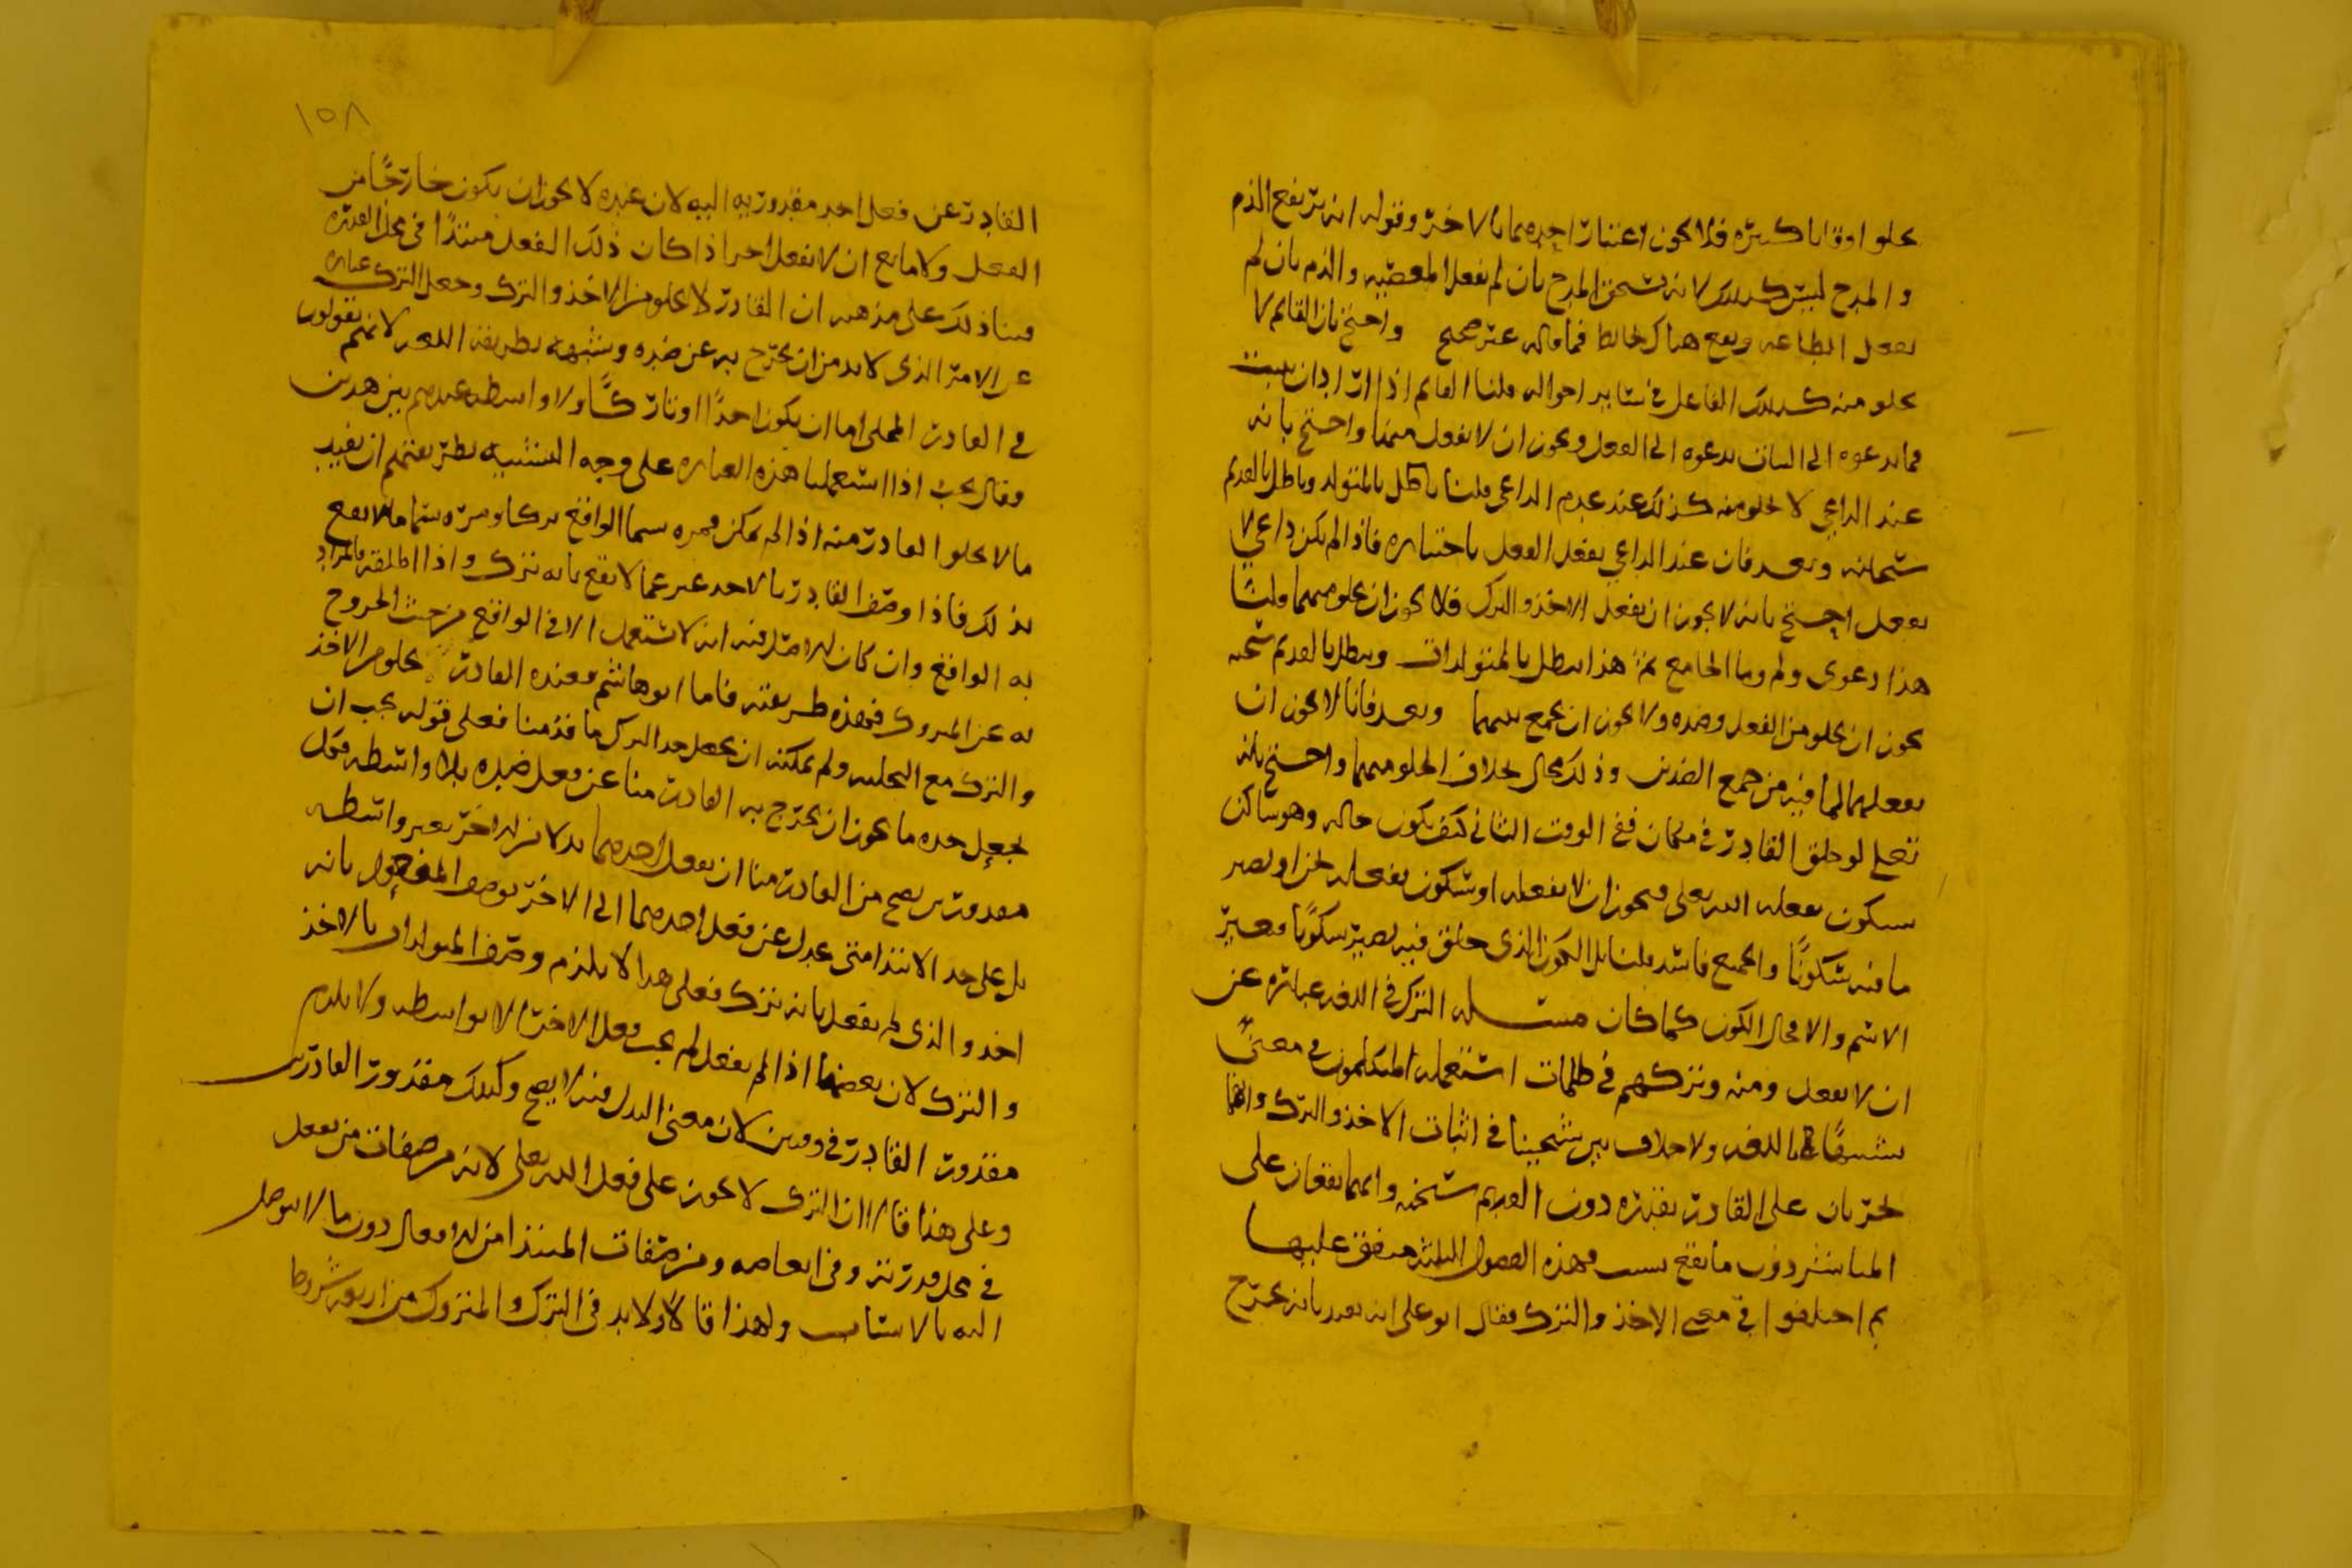 يخلو اوقاتا كثيرة فلا يجوز اعتبار احدهما بالاخر وقوله انه يرتفع الذم
و المدح ليس كذلك لانه يستحق المدح بان لم يفعل المعصية والذم بان لم
يفعل الطاعة ويقع هناك فما قاله غير صحيح واحتج بان القايم لا
يخلو منه كذلك الفاعل في ساير احواله قلنا القايم اذا اراد ان يثبت
فما يدعوه الى الثبات يدعوه الى الفعل ويجوز ان لا يفعل منهما واحتج بانه
عند الداعي لا يخلو منه كذلك عند عدم الداعي قلنا باطل بالمتولد وباطل بالقديم
سبحانه وبعد فان عند الداعي يفعل الفعل باختياره فاذا لم يكن داعي لا
يفعل احتج بانه لا يجوز ان يفعل الاخذ والترك فلا يجوز ان يخلو منهما قلنا
هذا دعوى ولم وما الجامع ثم هذا يبطل بالمتولدات ويبطل بالقديم سبحنه
يجوز ان يخلو من الفعل وضده ولا يجوز ان يجمع بينهما وبعد فانما لا يجوز ان
يفعلهما لما فيه من جمع الضدين وذلك محال بخلاف الخلو منهما واحتج بانه
تعلى لو خلق القادر في مكان ففي الوقت الثاني كيف يكون حاله وهو ساكن
بسكون يفعله الله تعلى فيجوز ان لا يفعله او بسكون يفعله الحي او يصير
ما فيه سكونا والجميع فاسد قلنا بل الكون الذي خلق فيه يصير سكونا فيغير
الاسم والا فحال الكون كما كان مسئلة الترك في اللغة عبارة عن
ان لا يفعل ومنه وتركهم في ظلمات استعمله المتكلمون في معنى
باللغة ولا خلاف بين شيخينا في اثبات الاخذ والترك وانهما
يجريان على القادر بقدرة دون القديم سبحنه وانهما يقعان على
المباشر دون ما يقع بسبب فهذه الفصول الثلثة متفق عليها
ثم اختلفوا في معنى الاخذ والترك فقال ابو علي انه يفيد بانه يخرج
١٥٨
القادر عن فعل احد مقدوريه اليه لان عنده لا يجوز ان يكون خارجا من
الفعل ولا مانع ان لا يفعل احدا اذا كان ذلك الفعل مبتدأ في محل القدرة
وبنا ذلك على مذهبه ان القادر لا يخلو من الاخذ والترك وجعل الترك عبارة
عن الامر الذي لا بد من ان يخرج به عن ضده وشبهه بطريقة اللغة لانهم يقولون
في القادر المخلى اما ان يكون اخذا او تاركا ولا واسطة عندهم بين هذين
وقال يجب اذا استعملنا هذه العبارة على وجه التشبيه بطريقتهم ان يفيد
ما لا يخلو القادر منه اذا لم يمكن فمرة يسما الواقع تركا ومرة يسما ما لا يقع
بذلك فاذا وصف القادر بالاخذ عبر عما لا يقع بانه ترك واذا اطلقه فالمراد
به الواقع وان كان فيه انه لا يستعمل الا في الواقع من حيث الخروج
به عن المتروك فهذه طريقته فاما ابو هاشم فعنده القادر يخلو من الاخذ
والترك مع التخلية ولم يمكنه ان يجعل حد الترك ما قدمنا فعلى قوله يجب ان
يجعل حده ما يجوز ان يخرج به القادر منا عن فعل ضده بلا واسطة فكل
مقدورين يصح من القادر منا ان يفعل احدهما بدلا من الاخر بغير واسطة
بل على حد الابتدا متى عدل عن فعل احدهما الى الاخر يوصف المفعول بانه
اخذ والذي لم يفعل بانه ترك فعلى هذا لا يلزم وصف المتولدات بالاخذ
والترك لان بعضها اذا لم يفعل لم يجب فعل الاخر الا بواسطة ولا يلزم
مقدور القادر في وقتين لان معنى البدل فيه لا يصح وكذلك مقدور القادرين
وعلى هذا قالا ان الترك لا يجوز على فعل الله تعلى لانه من صفات من يفعل
في محل قدرته وفي ابعاضه ومن صفات المبتدا من الافعال دون ما لا يتوصل
اليه بالاسباب ولهذا قالا ولا بد في الترك والمتروك من اربعة شروط